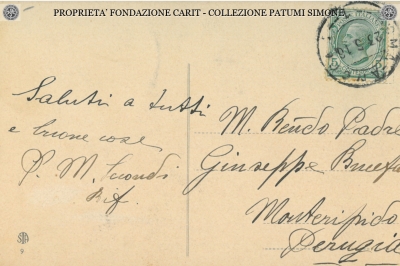 PROPRIETA' FONDAZIONE CARIT - COLLEZIONE PATUMI SIMONE
Saluti a tutti
e buone cose
P. M.
M. Rendo Padre
Giuseppe
Monteripido
Perugia